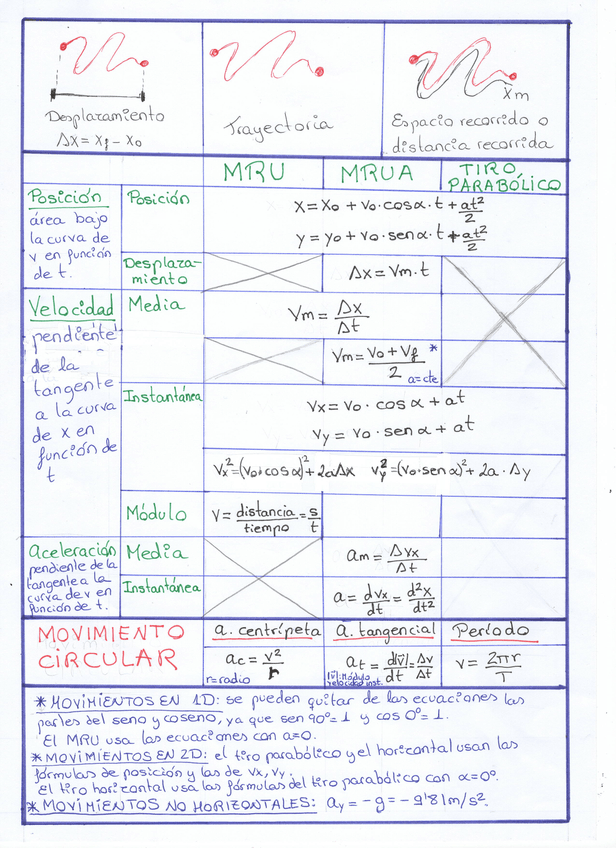 Desplazamiento
Δx = xf - x0
Trayectoria
xm
Espacio recorrido o
distancia recorrida
MRU
MRUA
TIRO
PARABÓLICO
Posición
área bajo
la curva de
v en función
de t.
Posición
x = x0 + v0·cosα·t + at²/2
y = y0 + v0·senα·t + at²/2
Desplaza-
miento
Δx = Vm·t
Velocidad
pendiente
de la
tangente
a la curva
de x en
función de
t
Media
Vm = Δx/Δt
Vm = (V0 + Vf)/2 *
a=cte
Instantánea
Vx = V0 · cosα + at
Vy = V0 · senα + at
Vx² = (V0·cosα)² + 2aΔx Vy² = (V0·senα)² + 2a·Δy
Módulo
V = distancia/tiempo = s/t
Aceleración
pendiente de la
tangente a la
curva de v en
función de t.
Media
am = ΔVx/Δt
Instantánea
a = dVx/dt = d²x/dt²
MOVIMIENTO
CIRCULAR
a. centrípeta
a. tangencial
Período
ac = v²/r
r=radio
at = d|v⃗|/dt = Δv/Δt
|v⃗|:Módulo
velocidad inst.
v = 2πr/T
* MOVIMIENTOS EN 1D: se pueden quitar de las ecuaciones las
partes del seno y coseno, ya que sen 90º=1 y cos 0º=1.
El MRU usa las ecuaciones con a=0.
* MOVIMIENTOS EN 2D: el tiro parabólico y el horizontal usan las
fórmulas de posición y las de Vx, Vy.
El tiro horizontal usa las fórmulas del tiro parabólico con α=0º.
* MOVIMIENTOS NO HORIZONTALES: ay = -g = -9'81m/s².